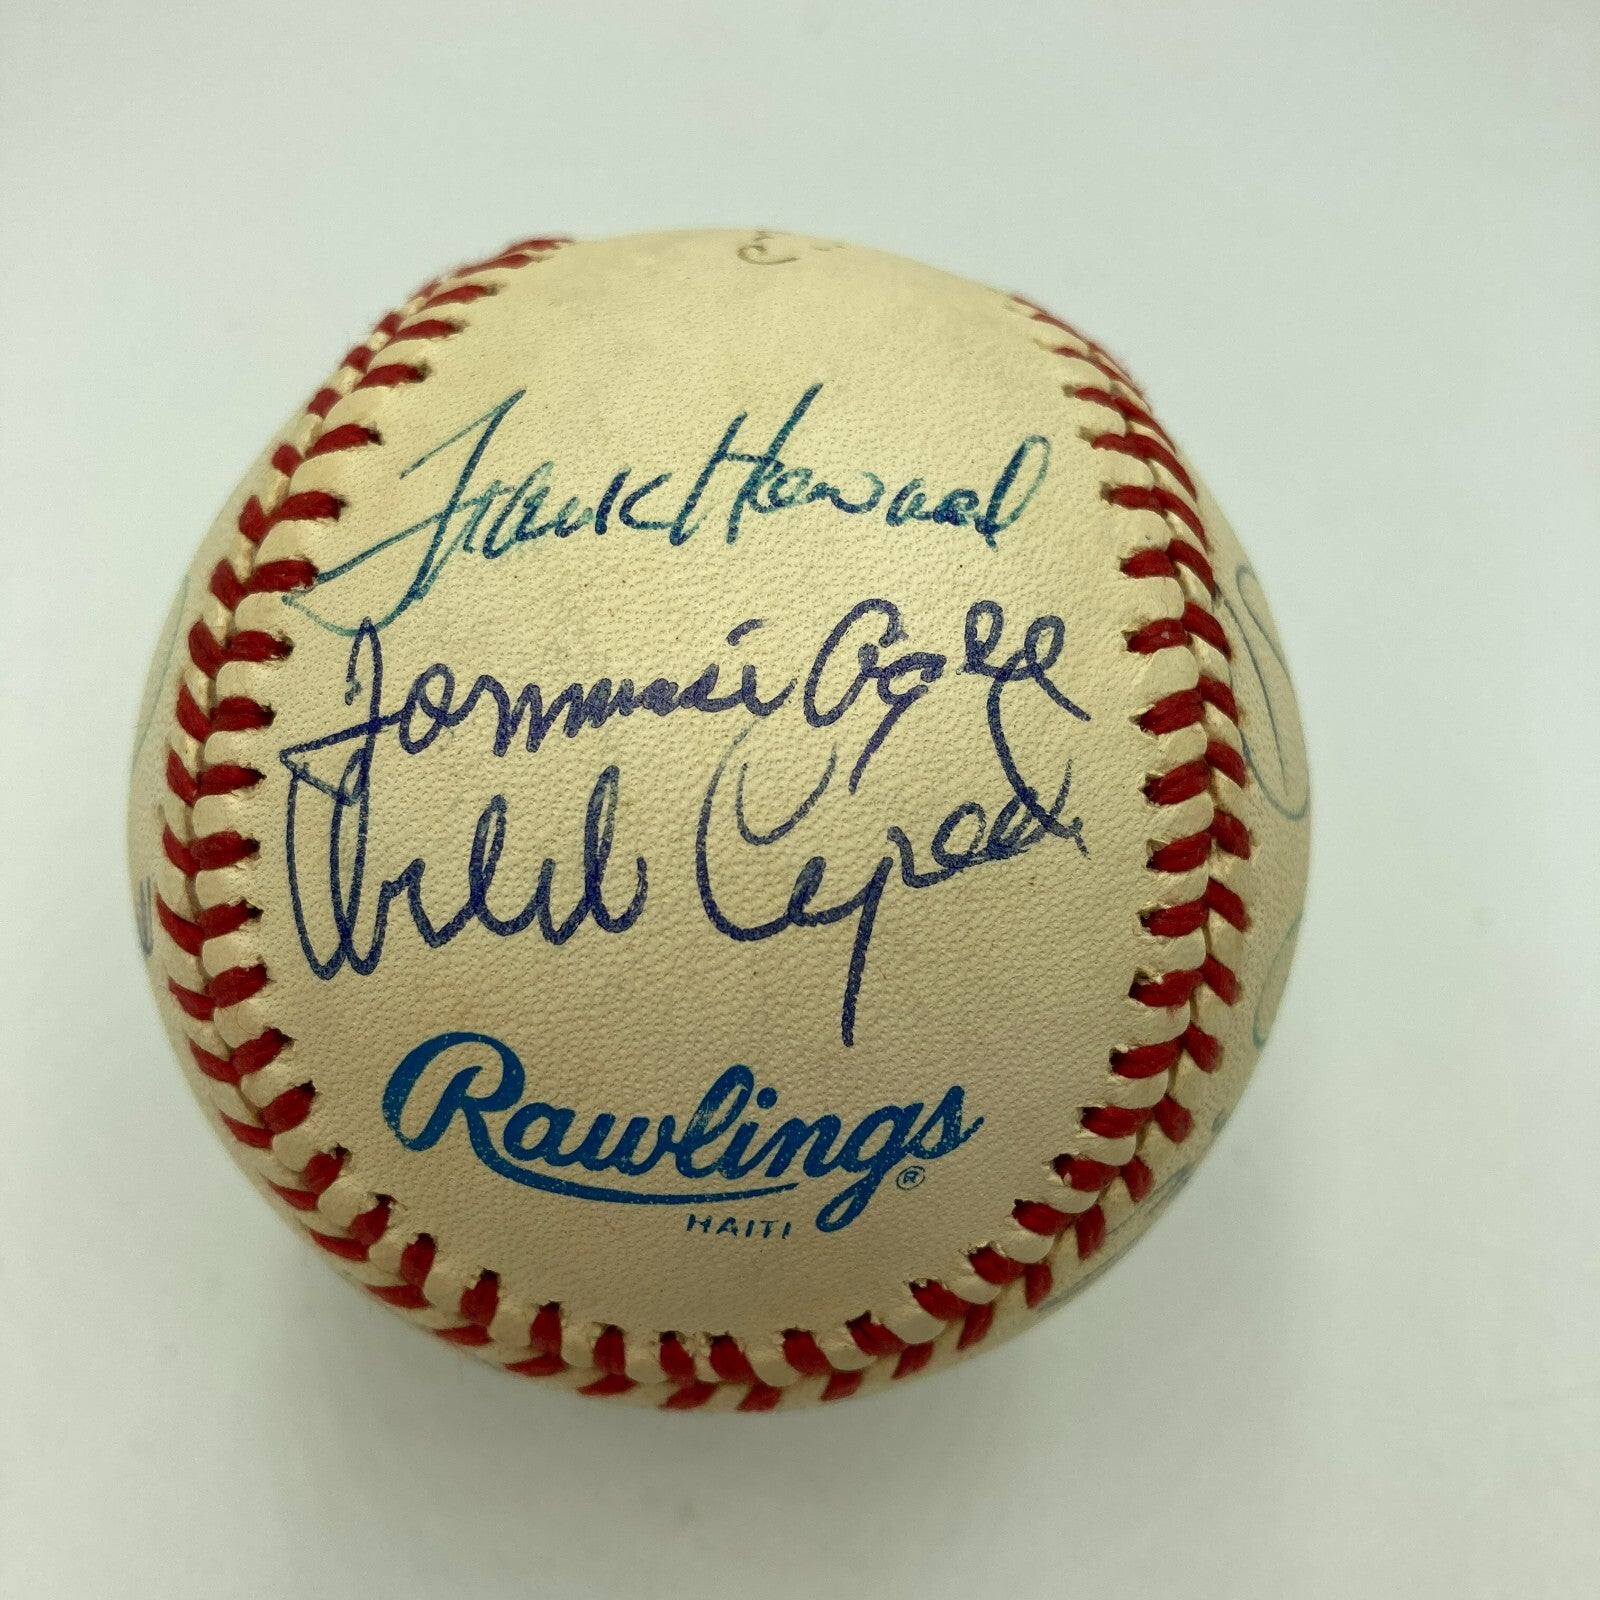 Frank Howard
Tommie Agee
Orlando Cepeda
Rawlings
®
HAITI